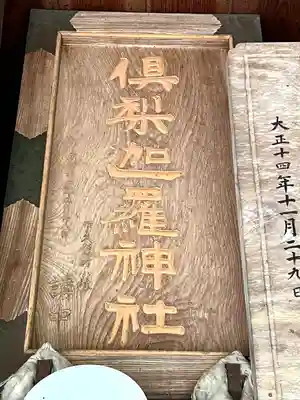 大正十四年十一月二十九日
倶梨迦羅神社
講中